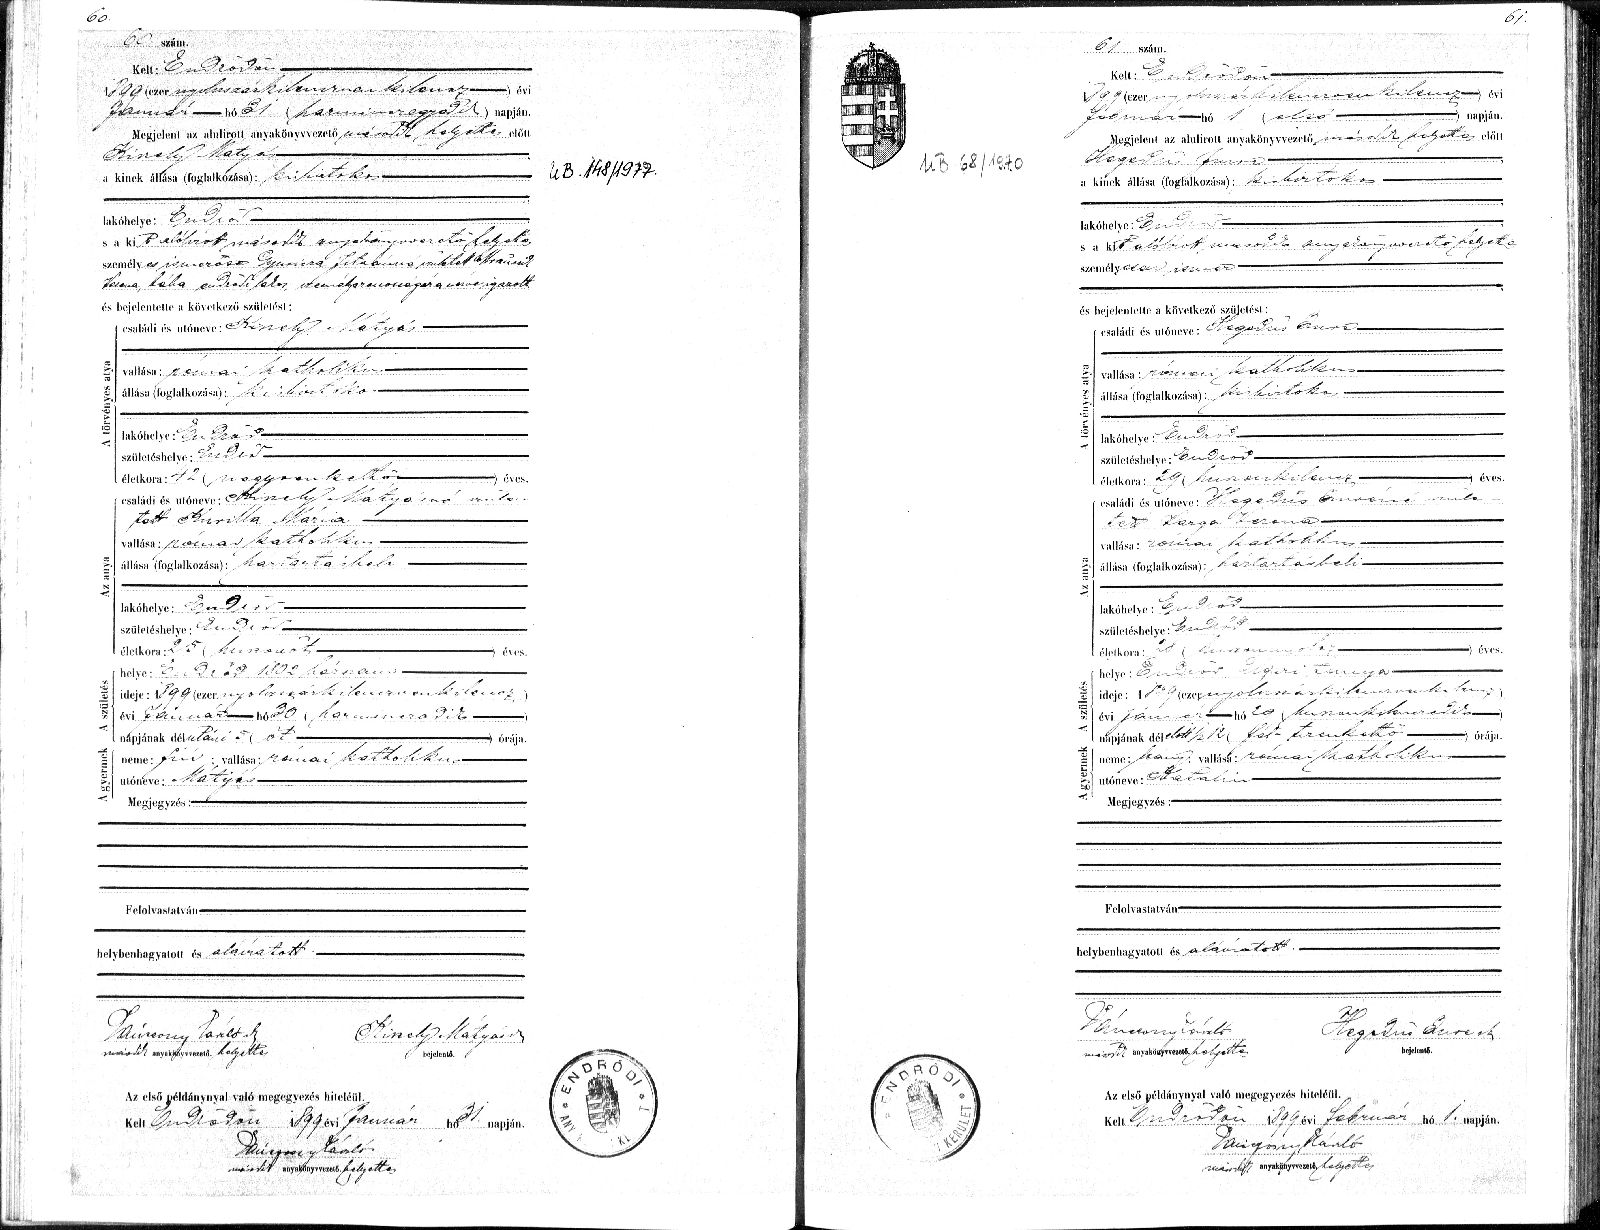 60.
60 szám.
Kelt: Endrődön
1899 (ezernyolczszázkilenczvenkilencz) évi
Január hó 31 (harminczegyedik) napján.
Megjelent az alulirott anyakönyvvezető második helyettes előtt
Kinely Mátyás
a kinek állása (foglalkozása): kisbirtokos
lakóhelye: Endrőd
s a kit alólirott második anyakönyvvezető helyettes
személyes
és bejelentette a következő születést:
A törvényes atya
családi és utóneve: Kinely Mátyás
vallása: római katholikus
állása (foglalkozása): kisbirtokos
lakóhelye: Endrőd
születéshelye: Endrőd
életkora: 42 (negyvenkettő) éves.
Az anya
családi és utóneve: Kinely Mátyásné szüle-
tett Kurilla Mária
vallása: római katholikus
állása (foglalkozása): háztartásbeli
lakóhelye: Endrőd
születéshelye: Endrőd
életkora: 25 (huszonöt) éves.
A születés
helye: Endrőd 1892 házszám
ideje: 1899 (ezernyolczszázkilenczvenkilencz)
évi Január hó 30 (harminczadik)
napjának délutáni 5 (öt) órája.
A gyermek
neme: fiú; vallása: római katholikus
utóneve: Mátyás
Megjegyzés:
Felolvastatván
helybenhagyatott és aláiratott.
második anyakönyvvezető helyettes
Kinely Mátyás
bejelentő.
Az első példánynyal való megegyezés hiteléül.
Kelt Endrődön 1899 évi Január hó 31. napján.
második anyakönyvvezető, helyettes
UB. 148/1977.
ENDRŐDI
61.
61 szám.
Kelt: Endrődön
1899 (ezernyolczszázkilenczvenkilencz) évi
február hó 1 (első) napján.
Megjelent az alulirott anyakönyvvezető második helyettes előtt
Hegedűs Imre
a kinek állása (foglalkozása): kisbirtokos
lakóhelye: Endrőd
s a kit alólirott második anyakönyvvezető helyettes
személyesen ismer
és bejelentette a következő születést:
A törvényes atya
családi és utóneve: Hegedűs Imre
vallása: római katholikus
állása (foglalkozása): kisbirtokos
lakóhelye: Endrőd
születéshelye: Endrőd
életkora: 29 (huszonkilencz) éves.
Az anya
családi és utóneve: Hegedűs Imréné szüle-
tett Varga Terézia
vallása: római katholikus
állása (foglalkozása): háztartásbeli
lakóhelye: Endrőd
születéshelye: Endrőd
életkora: éves.
A születés
helye: Endrőd tanya
ideje: 1899 (ezernyolczszázkilenczvenkilencz)
évi január hó 29 (huszonkilenczedik)
napjának délelőtt (fél tizenkettő) órája.
A gyermek
neme: leány; vallása: római katholikus
utóneve: Katalin
Megjegyzés:
Felolvastatván
helybenhagyatott és aláiratott.
második anyakönyvvezető, helyettes
Hegedűs Imre
bejelentő.
Az első példánynyal való megegyezés hiteléül.
Kelt Endrődön 1899 évi február hó 1. napján.
második anyakönyvvezető, helyettes
UB 68/1970
ENDRŐDI
KERÜLET